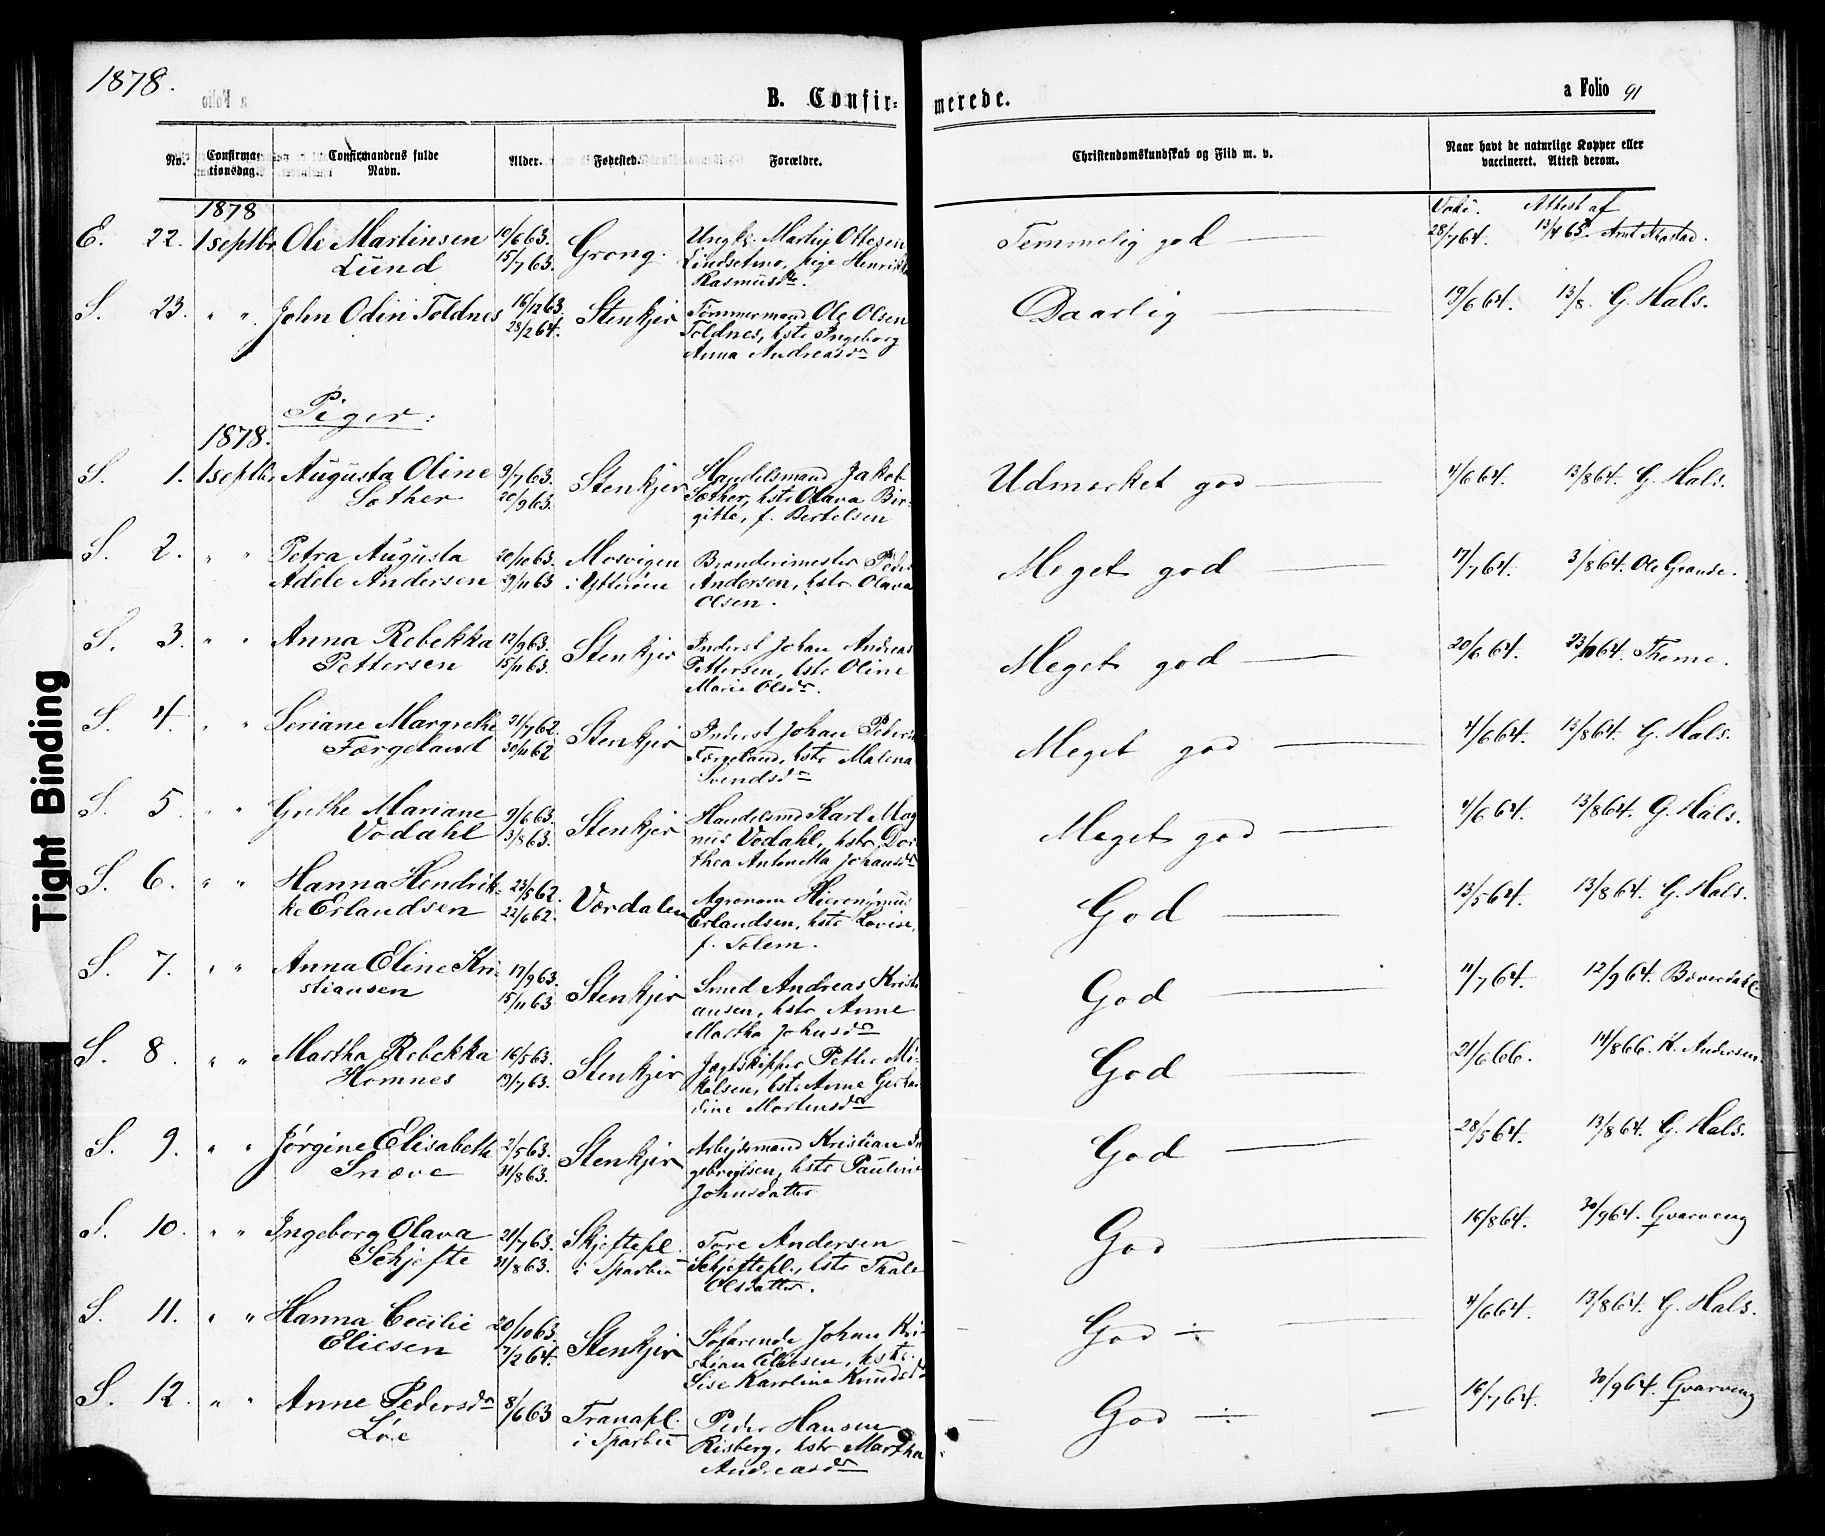 1878.
B. Confir-
merede.
a Folio 91
No.
Confirma-
tionsdag.
Confirmandens fulde
Navn.
Alder.
Fødested.
Forældre.
Christendomskundskab og Flid m. v.
Naar havt de naturlige Kopper eller
vaccineret. Attest derom.
1878
E. 22. 1 septbr Ole Martinsen 10/6 63. Grong. Ungk. Martin Ottesen Temmelig god 28/7 64. Attest af 13/4 65.
Lund 15/7 63. Lindsetmo, pige Henrikke
Rasmusdr.
S. 23. " " John Odin Toldnes 16/12 63. Stenkjer Tømmermand Ole Olsen Daarlig 19/6 64. 13/8. G. Hals.
28/2 64. Toldnes, hstr Ingeborg
Anna Andreasdr
Piger:
1878.
S. 1. 1 septbr. Augusta Oline 9/7 63. Stenkjer Handelsmand Jakob Udmærket god 4/6 64. 13/8 64. G. Hals.
Sæther 20/9 63. Sæther, hstr Olava Bir-
gitte, f. Bertelsen
S. 2. " " Petra Augusta 20/10 63. Mosvigen Brænderimester Peder Meget god 17/7 64. 3/8 64. Ole Grande.
Adele Andersen 29/11 63 i Ytterøen Andersen, hstr Olava
Olsen.
S. 3. " " Anna Rebekka 12/9 63. Stenkjer Inderst Johan Andreas Meget god 20/6 64. 23/11 64. Theme.
Pettersen 15/11 63. Pettersen, hstr Oline
Marie Olsdr.
S. 4. " " Seriane Margrethe 21/7 62. Stenkjer Inderst Johan Peders Meget god 4/6 64. 13/8 64. G. Hals.
Færgeland 30/11 62 Færgeland, hstr Malena
Svendsdr
S. 5. " " Grethe Mariane 9/6 63. Stenkjer Handelsmd Karl Mag Meget god 4/6 64. 13/8 64. G. Hals.
Vodahl 3/8 63. nus Vodahl, hstr Dor
thea Antonetta Johansdr
S. 6. " " Hanna Hendrik- 23/5 62. Værdalen Agronom Hieronymus God 13/5 64. 13/8 64. G. Hals.
ke Erlandsen 22/6 62. Erlandsen, hstr Lovise,
f. Tolem.
S. 7. " " Anna Eline Kri- 17/9 63. Stenkjer Smed Andreas Kristi God 11/7 64. 12/9 64. Bæverdahl.
stiansen 15/11 63 ansen, hstr Anne
Martha Johnsdr
S. 8. " " Martha Rebekka 16/5 63. Stenkjer Jægtskipper Petter Mi- God 21/6 66. 14/8 66. K. Andersen
Homnes 19/7 63. kalsen, hstr Anne Gerhar
dine Martensdr
S. 9. " " Jørgine Elisabeth 2/5 63. Stenkjer Arbejdsmand Kristian In God 28/5 64. 13/8 64. G. Hals.
Snæve 31/8 63. gebregtsen, hstr Pauline
Johnsdatter
S. 10. " " Ingeborg Olava 21/7 63. Skjeftepl. Tore Andersen God 16/8 64. 30/9 64. Gvarveng
Schjefte 31/8 63. i Sparbu Schjeftepl., hstr Thale
Olsdatter.
S. 11. " " Hanna Cecilie 20/10 63. Stenkjer Søfarende Johan Kri- God ÷ 4/6 64. 13/8 64. G. Hals.
Eliesen 7/2 64. stian Eliesen, hstr.
Sise Karoline Knudsdr
S. 12. " " Anne Pedersdr 8/6 63 Tranapl. Peder Hansen God ÷ 16/7 64. 30/9 64. Gvarveng
Løe i Sparbu Risberg, hstr Martha
Andreasdr
Tight Binding